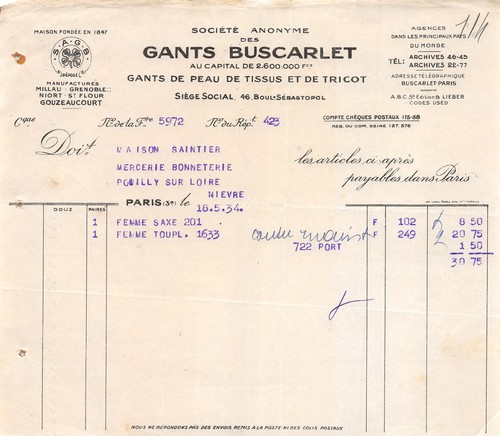 MAISON FONDÉE EN 1847
S.A.G.B.
MANUFACTURES
MILLAU - GRENOBLE
NIORT - ST FLOUR
GOUZEAUCOURT
SOCIÉTÉ ANONYME
DES
GANTS BUSCARLET
AU CAPITAL DE 2.600.000 FCS
GANTS DE PEAU DE TISSUS ET DE TRICOT
SIÈGE SOCIAL, 46, BOULD SÉBASTOPOL
AGENCES
DANS LES PRINCIPAUX PAYS
DU MONDE
TÉL: ARCHIVES 46-45
ARCHIVES 22-77
ADRESSE TÉLÉGRAPHIQUE
BUSCARLET-PARIS
A.B.C. 5E EDITION & LIEBER
CODES USED
Cque No de la Fre 5972 No du Répt. 423
COMPTE CHÈQUES POSTAUX 115-58
REG. DU COM. SEINE 127,576
Doit
MAISON SAINTIER
MERCERIE BONNETERIE
POUILLY SUR LOIRE
NIEVRE
les articles ci-après
payables dans Paris
PARIS (3e) le 18.5.34.
DOUZ PAIRES
1 FEMME SAXE 201 F 102 8 50
1 FEMME TOUPL. 1633 F 249 20 75
722 PORT 1 50
30 75
NOUS NE RÉPONDONS PAS DES ENVOIS REMIS À LA POSTE NI DES COLIS POSTAUX